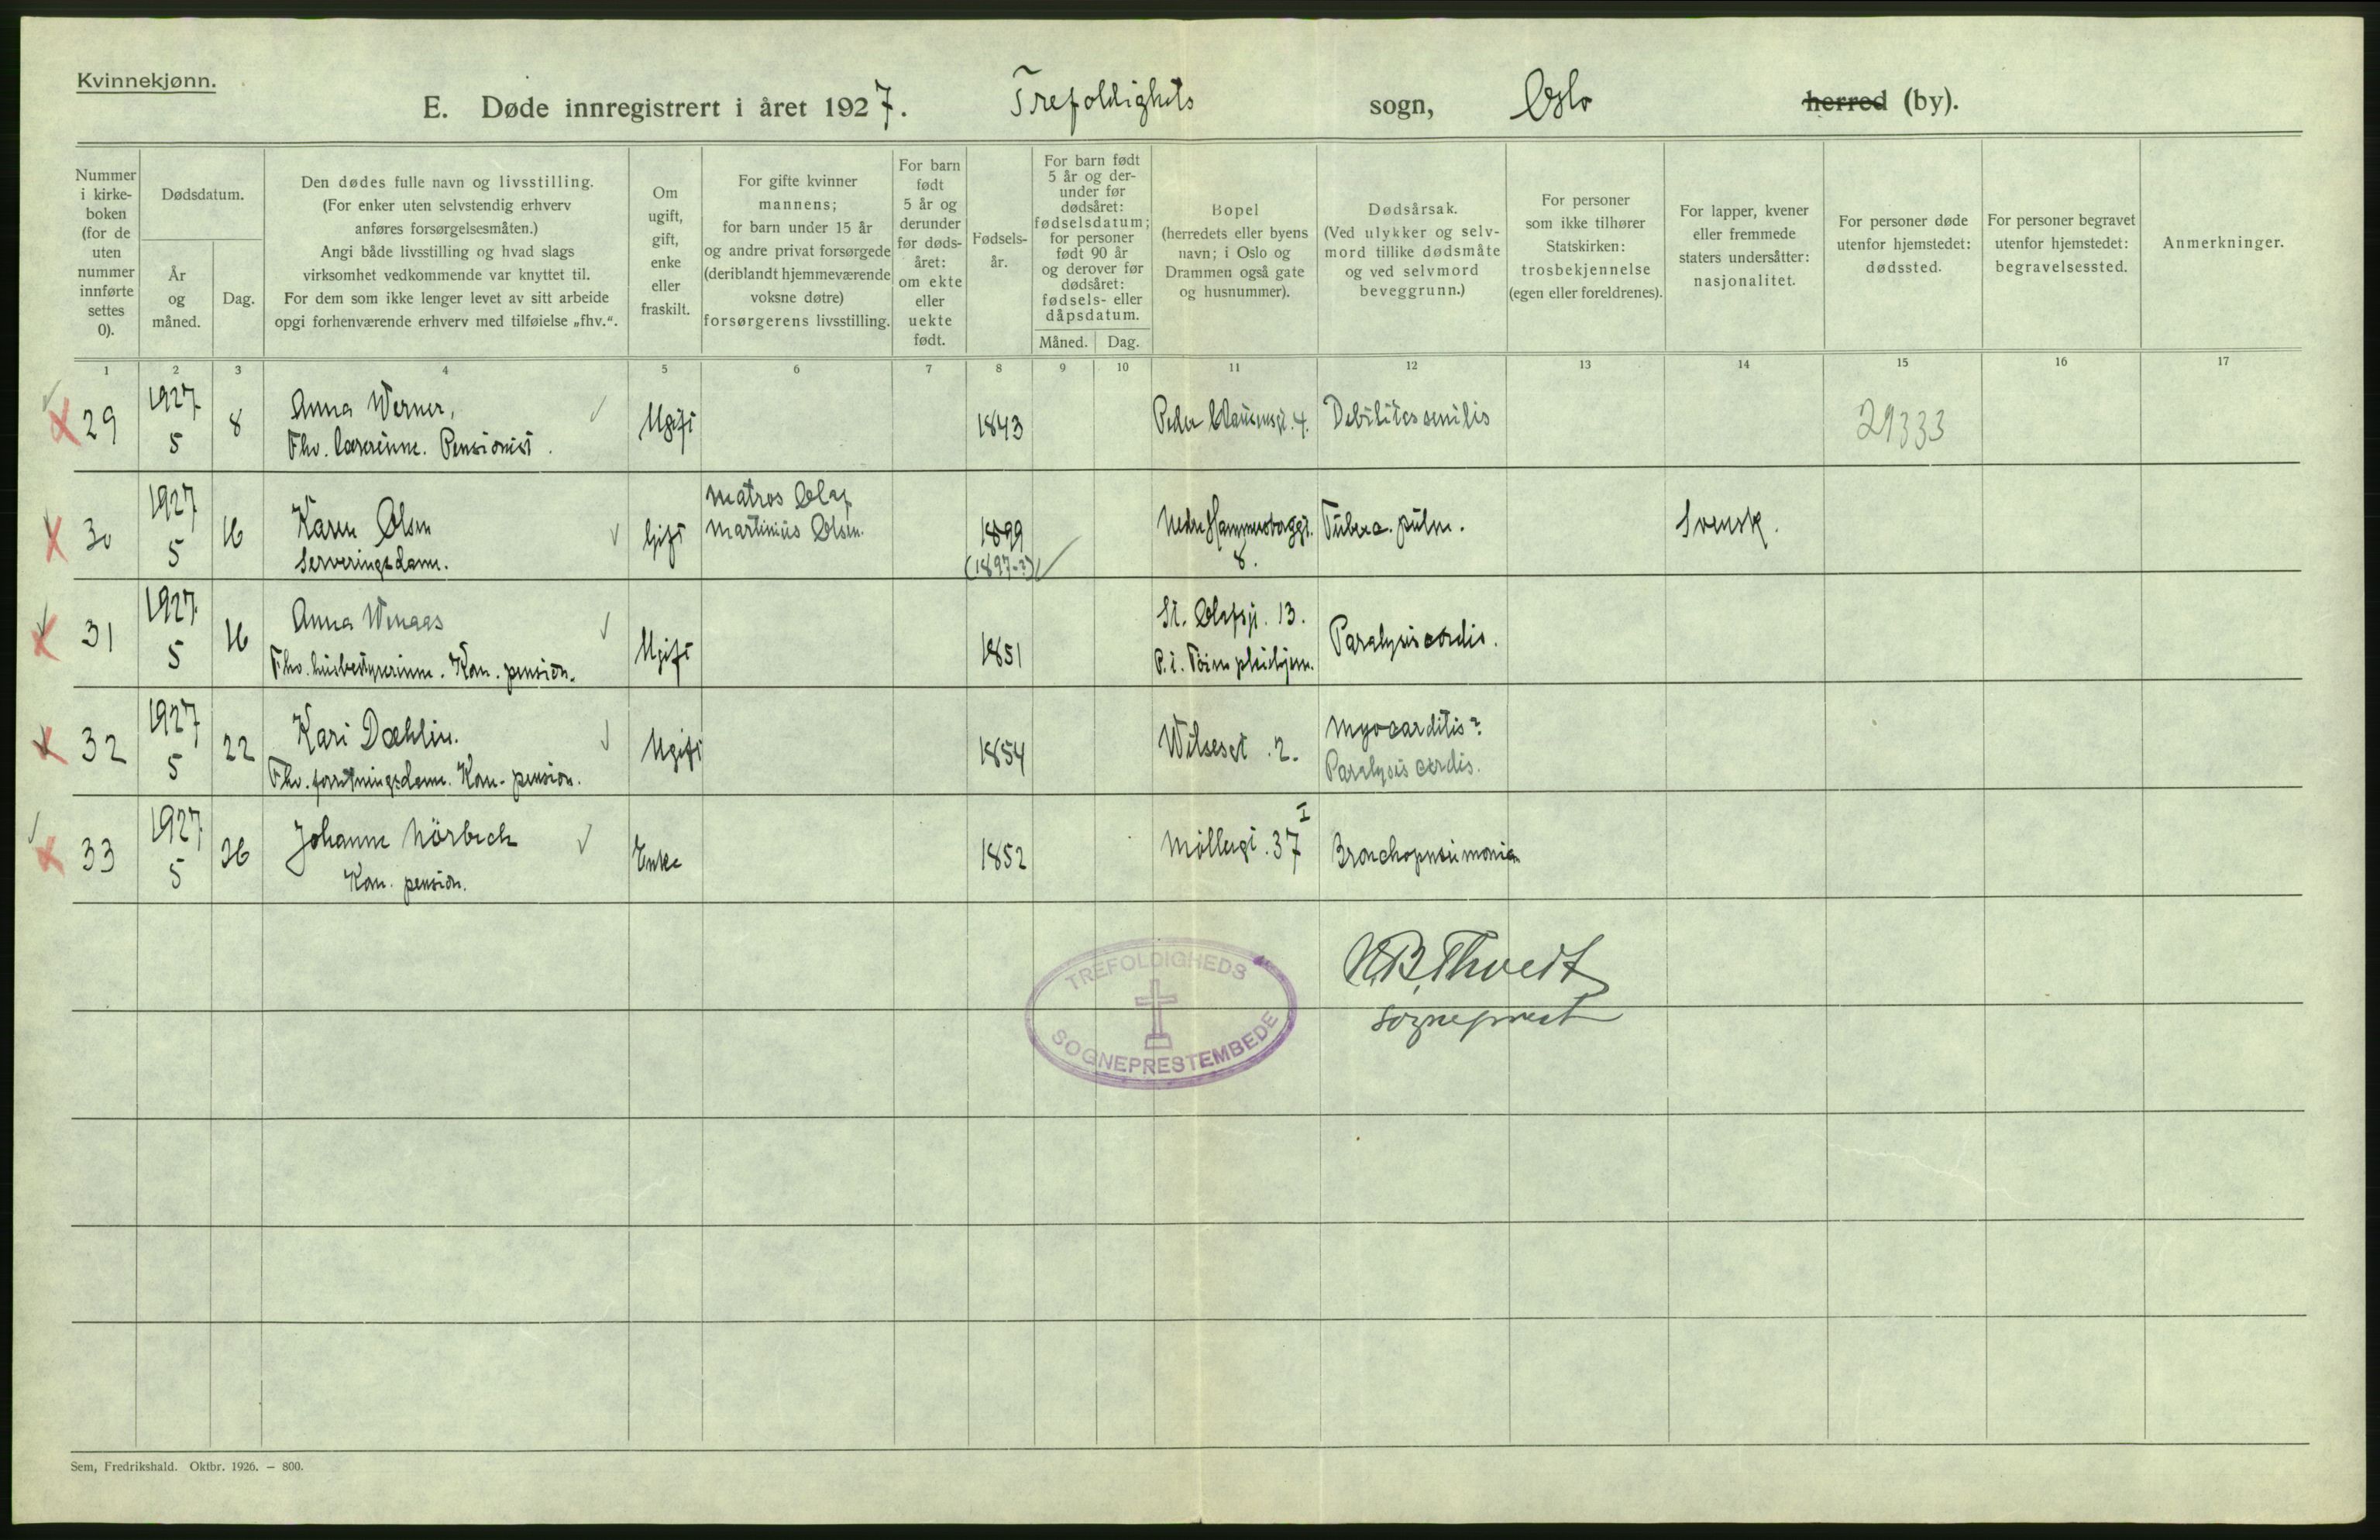 Kvinnekjønn.
E. Døde innregistrert i året 1927. Trefoldighets sogn, Oslo herred (by).
Nummer i kirke- boken (for de uten nummer innførte settes 0).
Dødsdatum.
År og måned.
Dag.
Den dødes fulle navn og livsstilling.
(For enker uten selvstendig erhverv
anføres forsørgelsesmåten.)
Angi både livsstilling og hvad slags
virksomhet vedkommende var knyttet til.
For dem som ikke lenger levet av sitt arbeide
opgi forhenværende erhverv med tilføielse „fhv.“.
Om ugift, gift, enke eller fraskilt.
For gifte kvinner
mannens;
for barn under 15 år
og andre privat forsørgede
(deriblandt hjemmeværende
voksne døtre)
forsørgerens livsstilling.
For barn født 5 år og derunder før døds- året: om ekte eller uekte født.
Fødsels- år.
For barn født
5 år og der-
under før
dødsåret:
fødselsdatum;
for personer
født 90 år
og derover før
dødsåret:
fødsels- eller
dåpsdatum.
Måned. Dag.
Bopel
(herredets eller byens
navn; i Oslo og
Drammen også gate
og husnummer).
Dødsårsak.
(Ved ulykker og selv-
mord tillike dødsmåte
og ved selvmord
beveggrunn.)
For personer
som ikke tilhører
Statskirken:
trosbekjennelse
(egen eller foreldrenes).
For lapper, kvener
eller fremmede
staters undersåtter:
nasjonalitet.
For personer døde
utenfor hjemstedet:
dødssted.
For personer begravet
utenfor hjemstedet:
begravelsessted.
Anmerkninger.
1 2 3 4 5 6 7 8 9 10 11 12 13 14 15 16 17
29 1927 5 8 Anna Werner, Ugift 1843 Peder Clausensgt. 4. Debilitas senilis 29333
Fhv. lærerinne. Pensionist.
30 1927 5 16 Karen Olsen Gift Matros Olaf
Martinius Olsen. 1899 Nedre Hammersborggt. 8. Tuberc. pulm. Svensk.
Serveringsdame. (1897-?)
31 1927 5 16 Anna Wenaas Ugift 1851 St. Olafsgt. 13. Paralysis cordis.
Fhv. husbestyrerinne. Kom. pension. P.t. Töien pleiehjem.
32 1927 5 22 Kari Dæhlin. Ugift 1854 Wilsesgt. 2. Myocarditis?
Fhv. forretningsdame. Kom. pension. Paralysis cordis.
33 1927 5 26 Johanne Nörbech Enke 1852 Möllergt. 37 I Bronchopneumonia
Kom. pension.
TREFOLDIGHEDS
SOGNEPRESTEMBEDE
sogneprest
Sem, Fredrikshald. Oktbr. 1926. — 800.